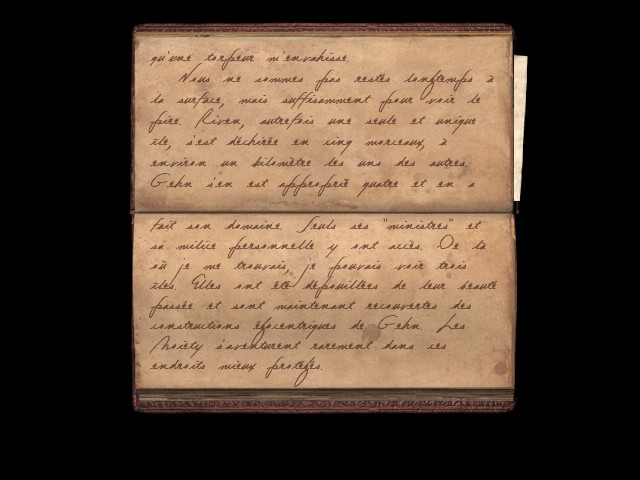 qu'une torpeur m'envahisse.
Nous ne sommes pas restés longtemps à
la surface, mais suffisamment pour voir le
pire. Riven, autrefois une seule et unique
île, s'est déchirée en cinq morceaux, à
environ un kilomètre les uns des autres.
Gehn s'en est approprié quatre et en a
fait son domaine. Seuls ses "ministres" et
sa milice personnelle y ont accès. De là
où je me trouvais, je pouvais voir trois
îles. Elles ont été dépouillées de leur beauté
passée et sont maintenant recouvertes des
constructions égocentriques de Gehn. Les
Moiety s'aventurent rarement dans ces
endroits mieux protégés.